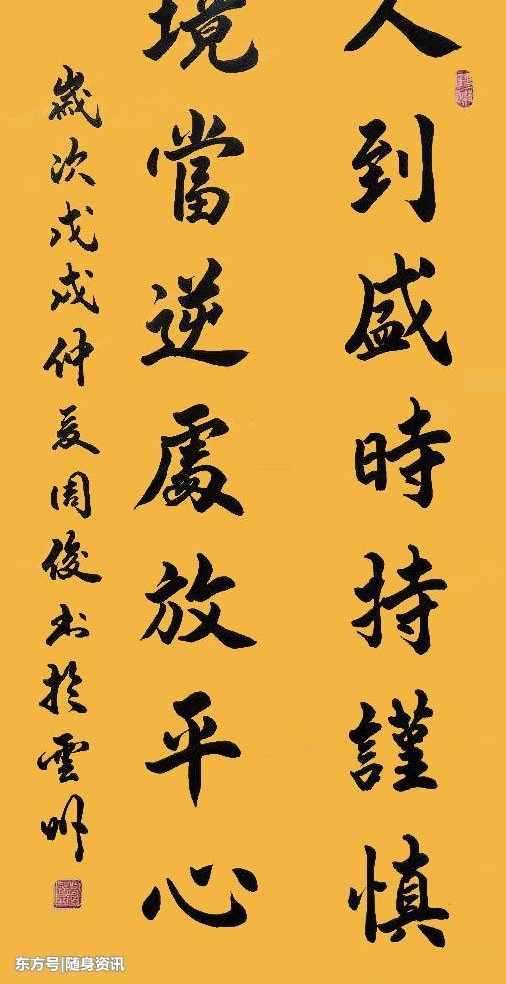 人到盛時持謹慎
境當逆處放平心
歲次戊戌仲夏周俊書於雲州
东方号|随身资讯